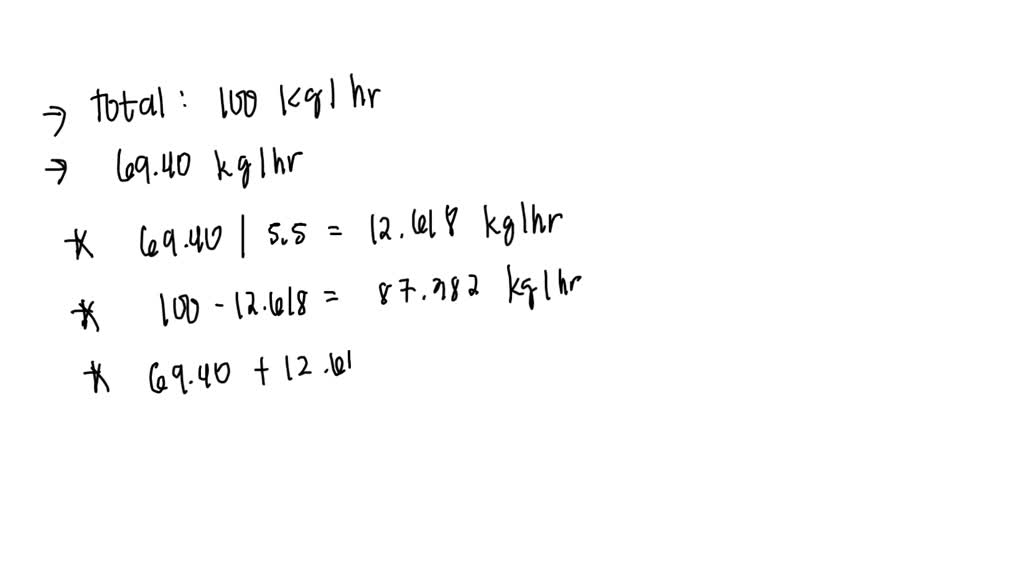 → total: 100 kg/hr
→ 69.40 kg/hr
* 69.40 / 5.5 = 12.618 kg/hr
* 100 - 12.618 = 87.382 kg/hr
* 69.40 + 12.61